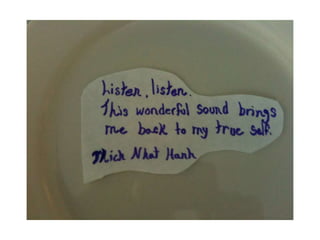 Listen, listen.
This wonderful sound brings
me back to my true self.
Thich Nhat Hanh